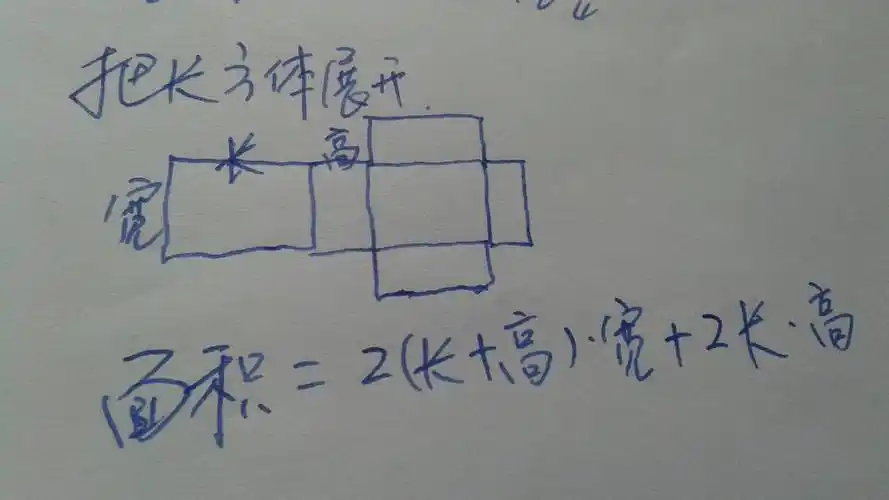 把长方体展开.
长 高
宽
面积=2(长+高)·宽+2长·高